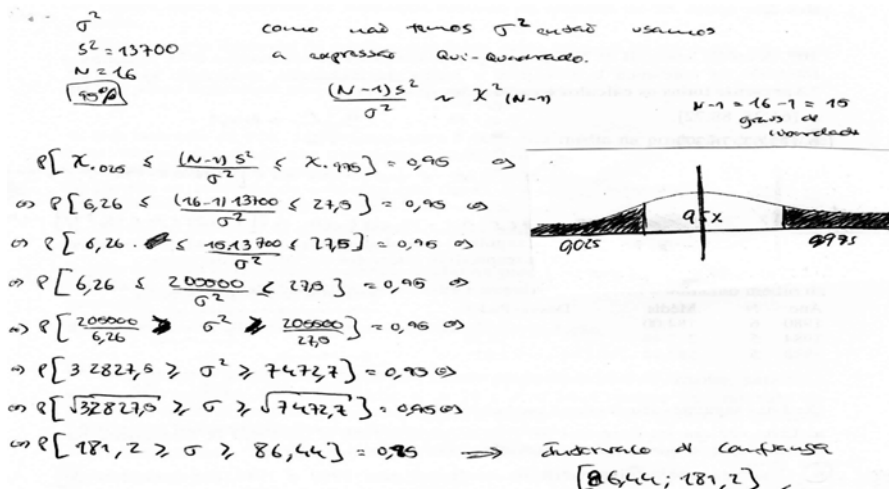 σ²
S² = 13700
N = 16
95%
como não temos σ² então usamos
a expressão Qui-Quadrado.
(N-1)S² / σ² ~ X²(N-1)
N-1 = 16-1 = 15
graus de
liberdade
P[X.025 ≤ (N-1)S² / σ² ≤ X.975] = 0,95 ⇔
⇔ P[6,26 ≤ (16-1)13700 / σ² ≤ 27,5] = 0,95 ⇔
⇔ P[6,26 ≤ 15.13700 / σ² ≤ 27,5] = 0,95 ⇔
⇔ P[6,26 ≤ 205500 / σ² ≤ 27,5] = 0,95 ⇔
⇔ P[205500 / 6,26 ≥ σ² ≥ 205500 / 27,5] = 0,95 ⇔
⇔ P[32827,5 ≥ σ² ≥ 7472,7] = 0,95 ⇔
⇔ P[√32827,5 ≥ σ ≥ √7472,7] = 0,95 ⇔
⇔ P[181,2 ≥ σ ≥ 86,44] = 0,95 ⟹ Intervalo de Confiança
[86,44; 181,2]
95%
0,025
0,975